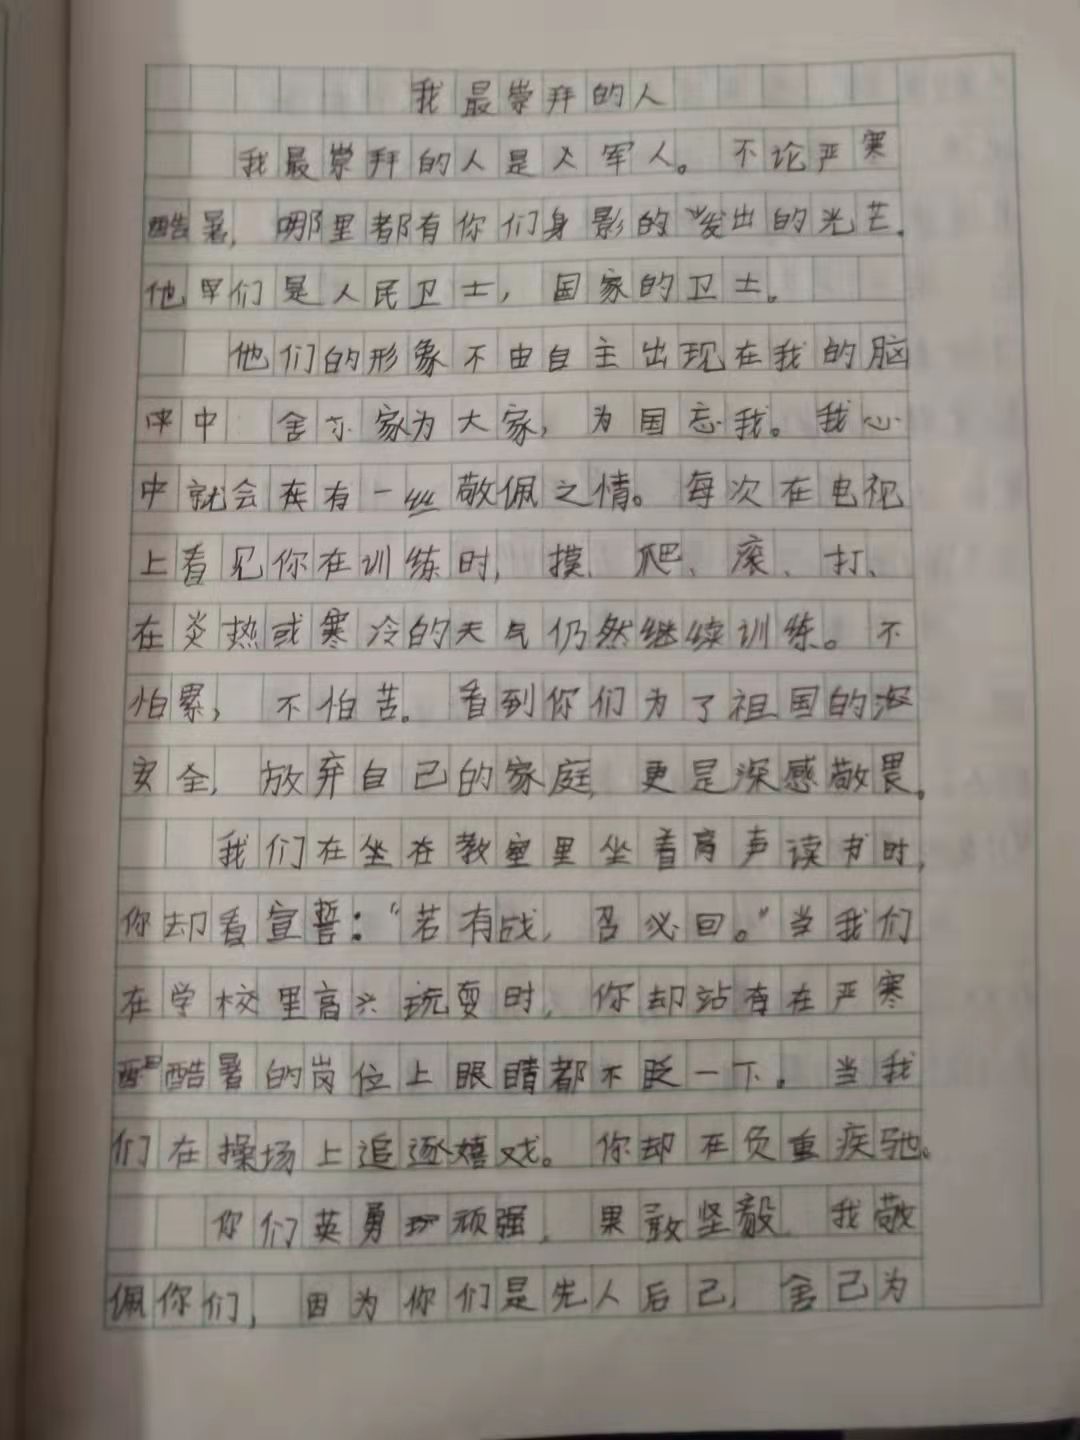 我最崇拜的人
我最崇拜的人是军人。不论严寒
酷暑，哪里都有你们身影的发出的光芒。
他们是人民卫士，国家的卫士。
他们的形象不由自主出现在我的脑
中 舍小家为大家，为国忘我。我心
中就会有一丝敬佩之情。每次在电视
上看见你在训练时，摸、爬、滚、打、
在炎热或寒冷的天气仍然继续训练。不
怕累，不怕苦。看到你们为了祖国的
安全，放弃自己的家庭，更是深感敬畏。
我们在坐在教室里坐着高声读书时，
你却看宣誓：“若有战，召必回。”当我们
在学校里高兴玩耍时，你却站在严寒
酷暑的岗位上眼睛都不眨一下。当我
们在操场上追逐嬉戏。你却在负重疾驰。
你们英勇顽强，果敢坚毅，我敬
佩你们，因为你们是先人后己，舍己为